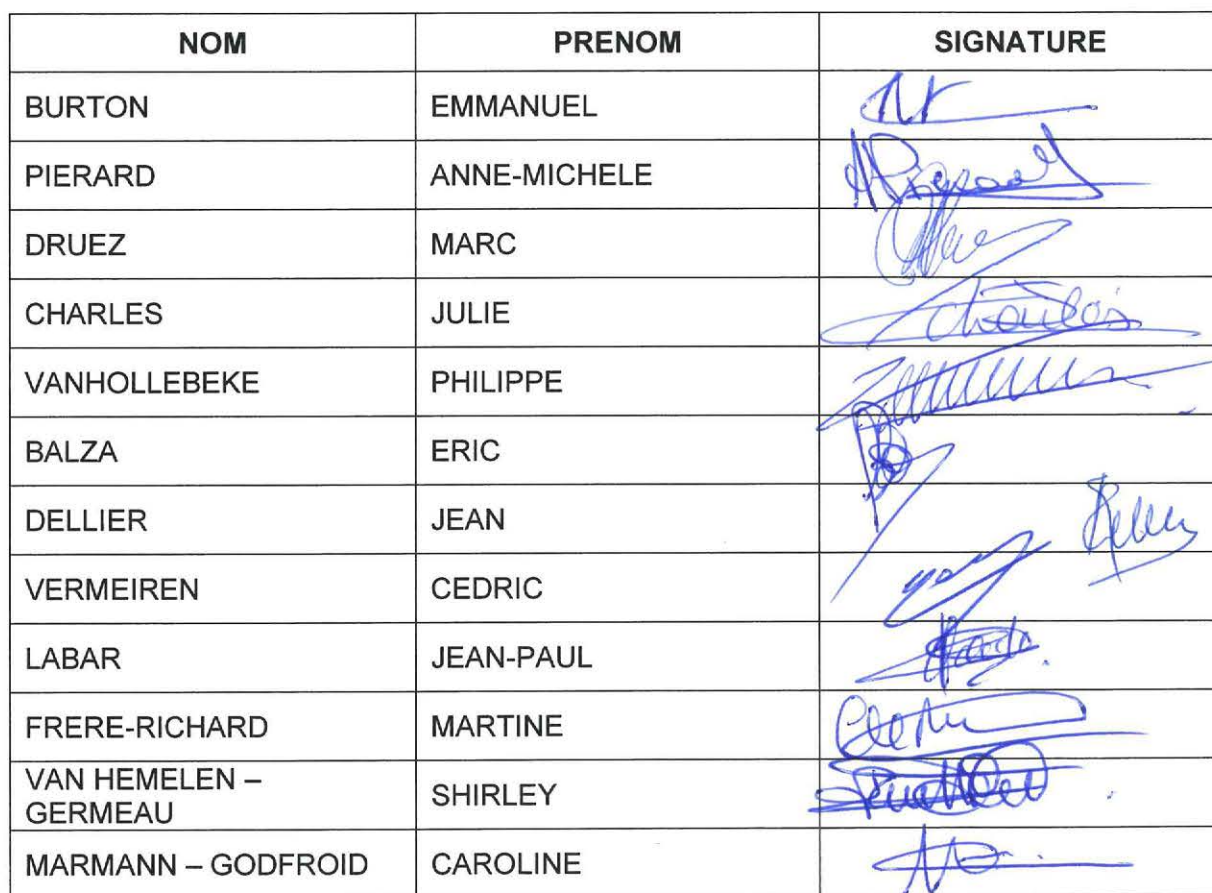 NOM PRENOM SIGNATURE
BURTON EMMANUEL
PIERARD ANNE-MICHELE
DRUEZ MARC
CHARLES JULIE
VANHOLLEBEKE PHILIPPE
BALZA ERIC
DELLIER JEAN
VERMEIREN CEDRIC
LABAR JEAN-PAUL
FRERE-RICHARD MARTINE
VAN HEMELEN –
GERMEAU SHIRLEY
MARMANN – GODFROID CAROLINE